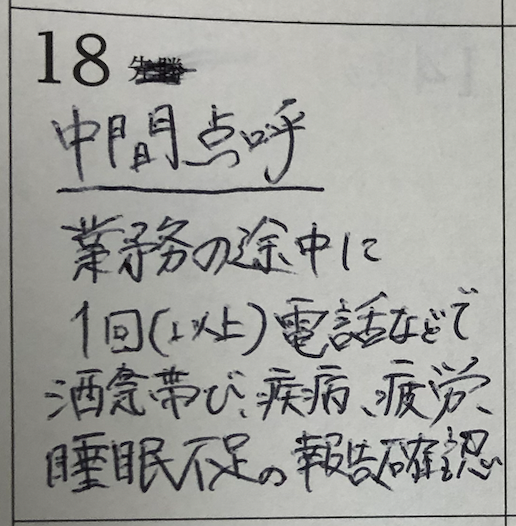 18 先勝
中間点呼
業務の途中に
1回(以上)電話などで
酒気帯び、疾病、疲労、
睡眠不足の報告確認